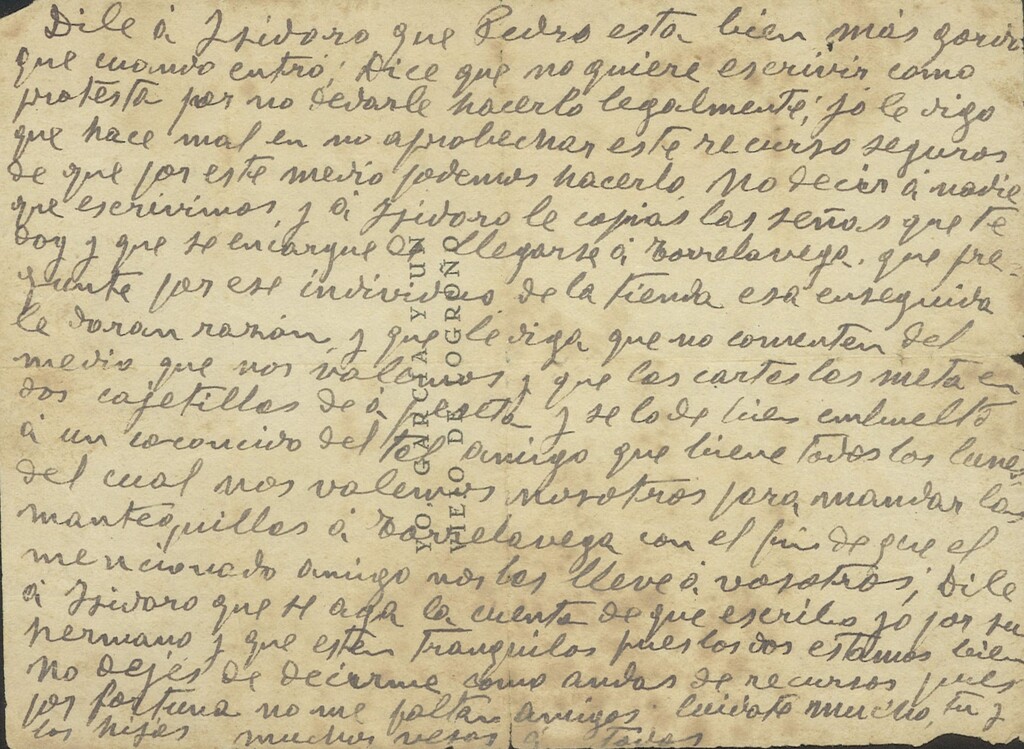 Dile á Isidoro que Pedro esta bien más gordo
que cuando entró; Dice que no quiere escrivir como
protesta por no dejarle hacerlo legalmente; yo le digo
que hace mal en no aprobechar este recurso seguros
de que por este medio podemos hacerlo No decir á nadie
que escrivimos, y á Isidoro le copiás las señas que te
doy y que se encargue de llegarse á Torrelavega, que pre-
gunte por ese individuo de la tienda esa enseguida
le daran razón, y que le diga que no comenten del
medio que nos valemos y que las cartas las meta en
dos cajetillas de á peseta y se lo de bien embuelto
á un conocido del tal amigo que biene todos los lunes,
del cual nos valemos nosotros para mandar las
mantequillas á Torrelavega con el fin de que el
mencionado amigo nos las lleve á vosotros; Dile
á Isidoro que se aga la cuenta de que escribo yo por su
hermano y que esten tranquilos pues los dos estamos bien
No dejés de decirme como andas de recursos pues
por fortuna no me faltan amigos. Cuidate mucho, tu y
los hijos muchos vesos á todos
YO, GARCIA Y UZ
VIEJO DE LOGROÑO